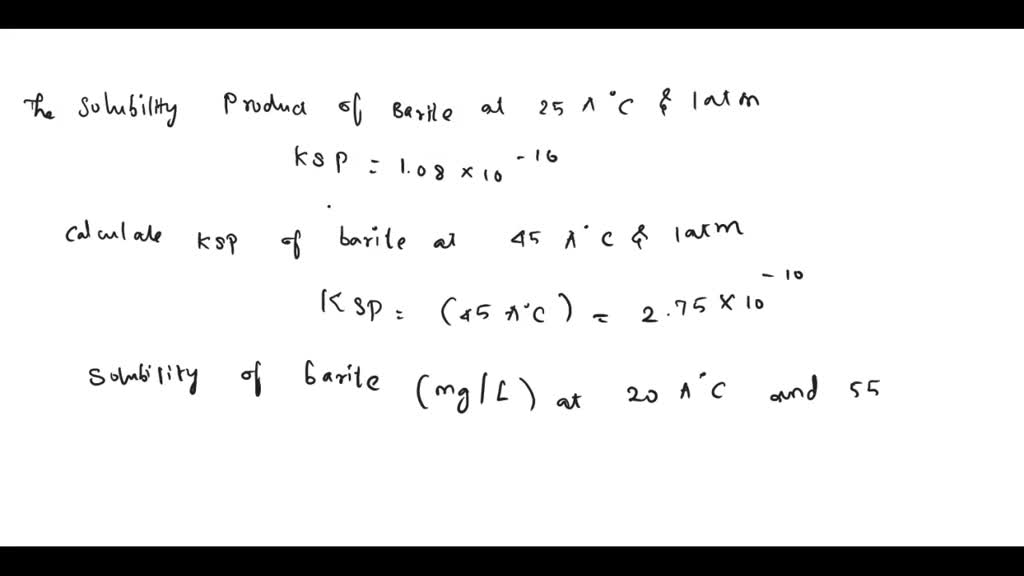 The Solubility Product of Barite at 25 Λ°C & 1atm
KSP = 1.08 × 10⁻¹⁶
Calculate KSP of barite at 45 Λ°C & 1atm
KSP = (45 Λ°C) = 2.75 × 10⁻¹⁰
Solubility of barite (mg/L) at 20 Λ°C and 55